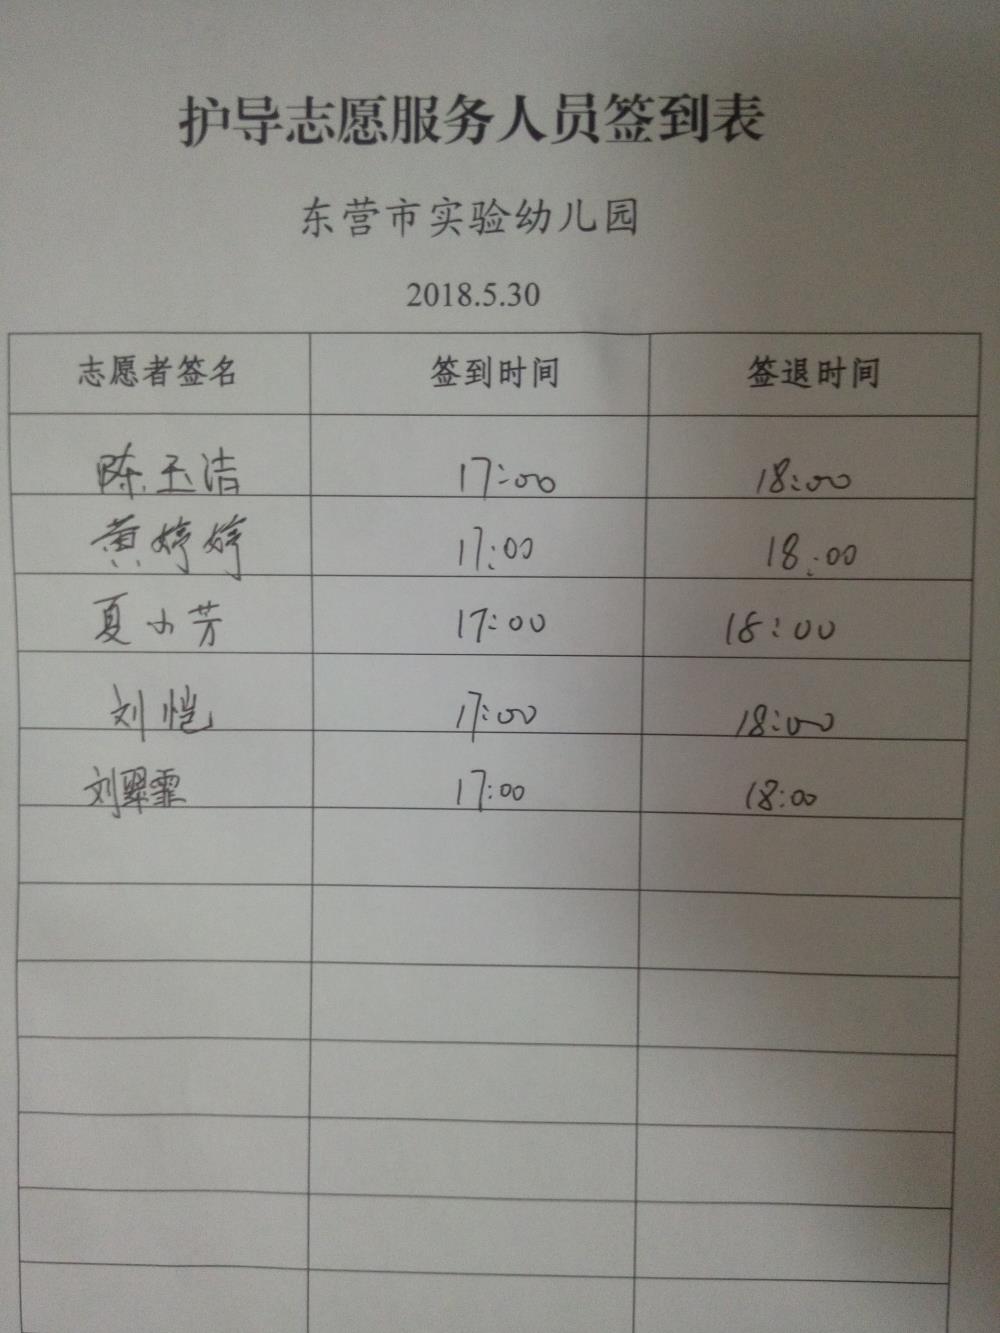 护导志愿服务人员签到表
东营市实验幼儿园
2018.5.30
志愿者签名 签到时间 签退时间
陈玉洁 17:00 18:00
黄婷婷 17:00 18:00
夏小芳 17:00 18:00
刘恺 17:00 18:00
刘翠霏 17:00 18:00